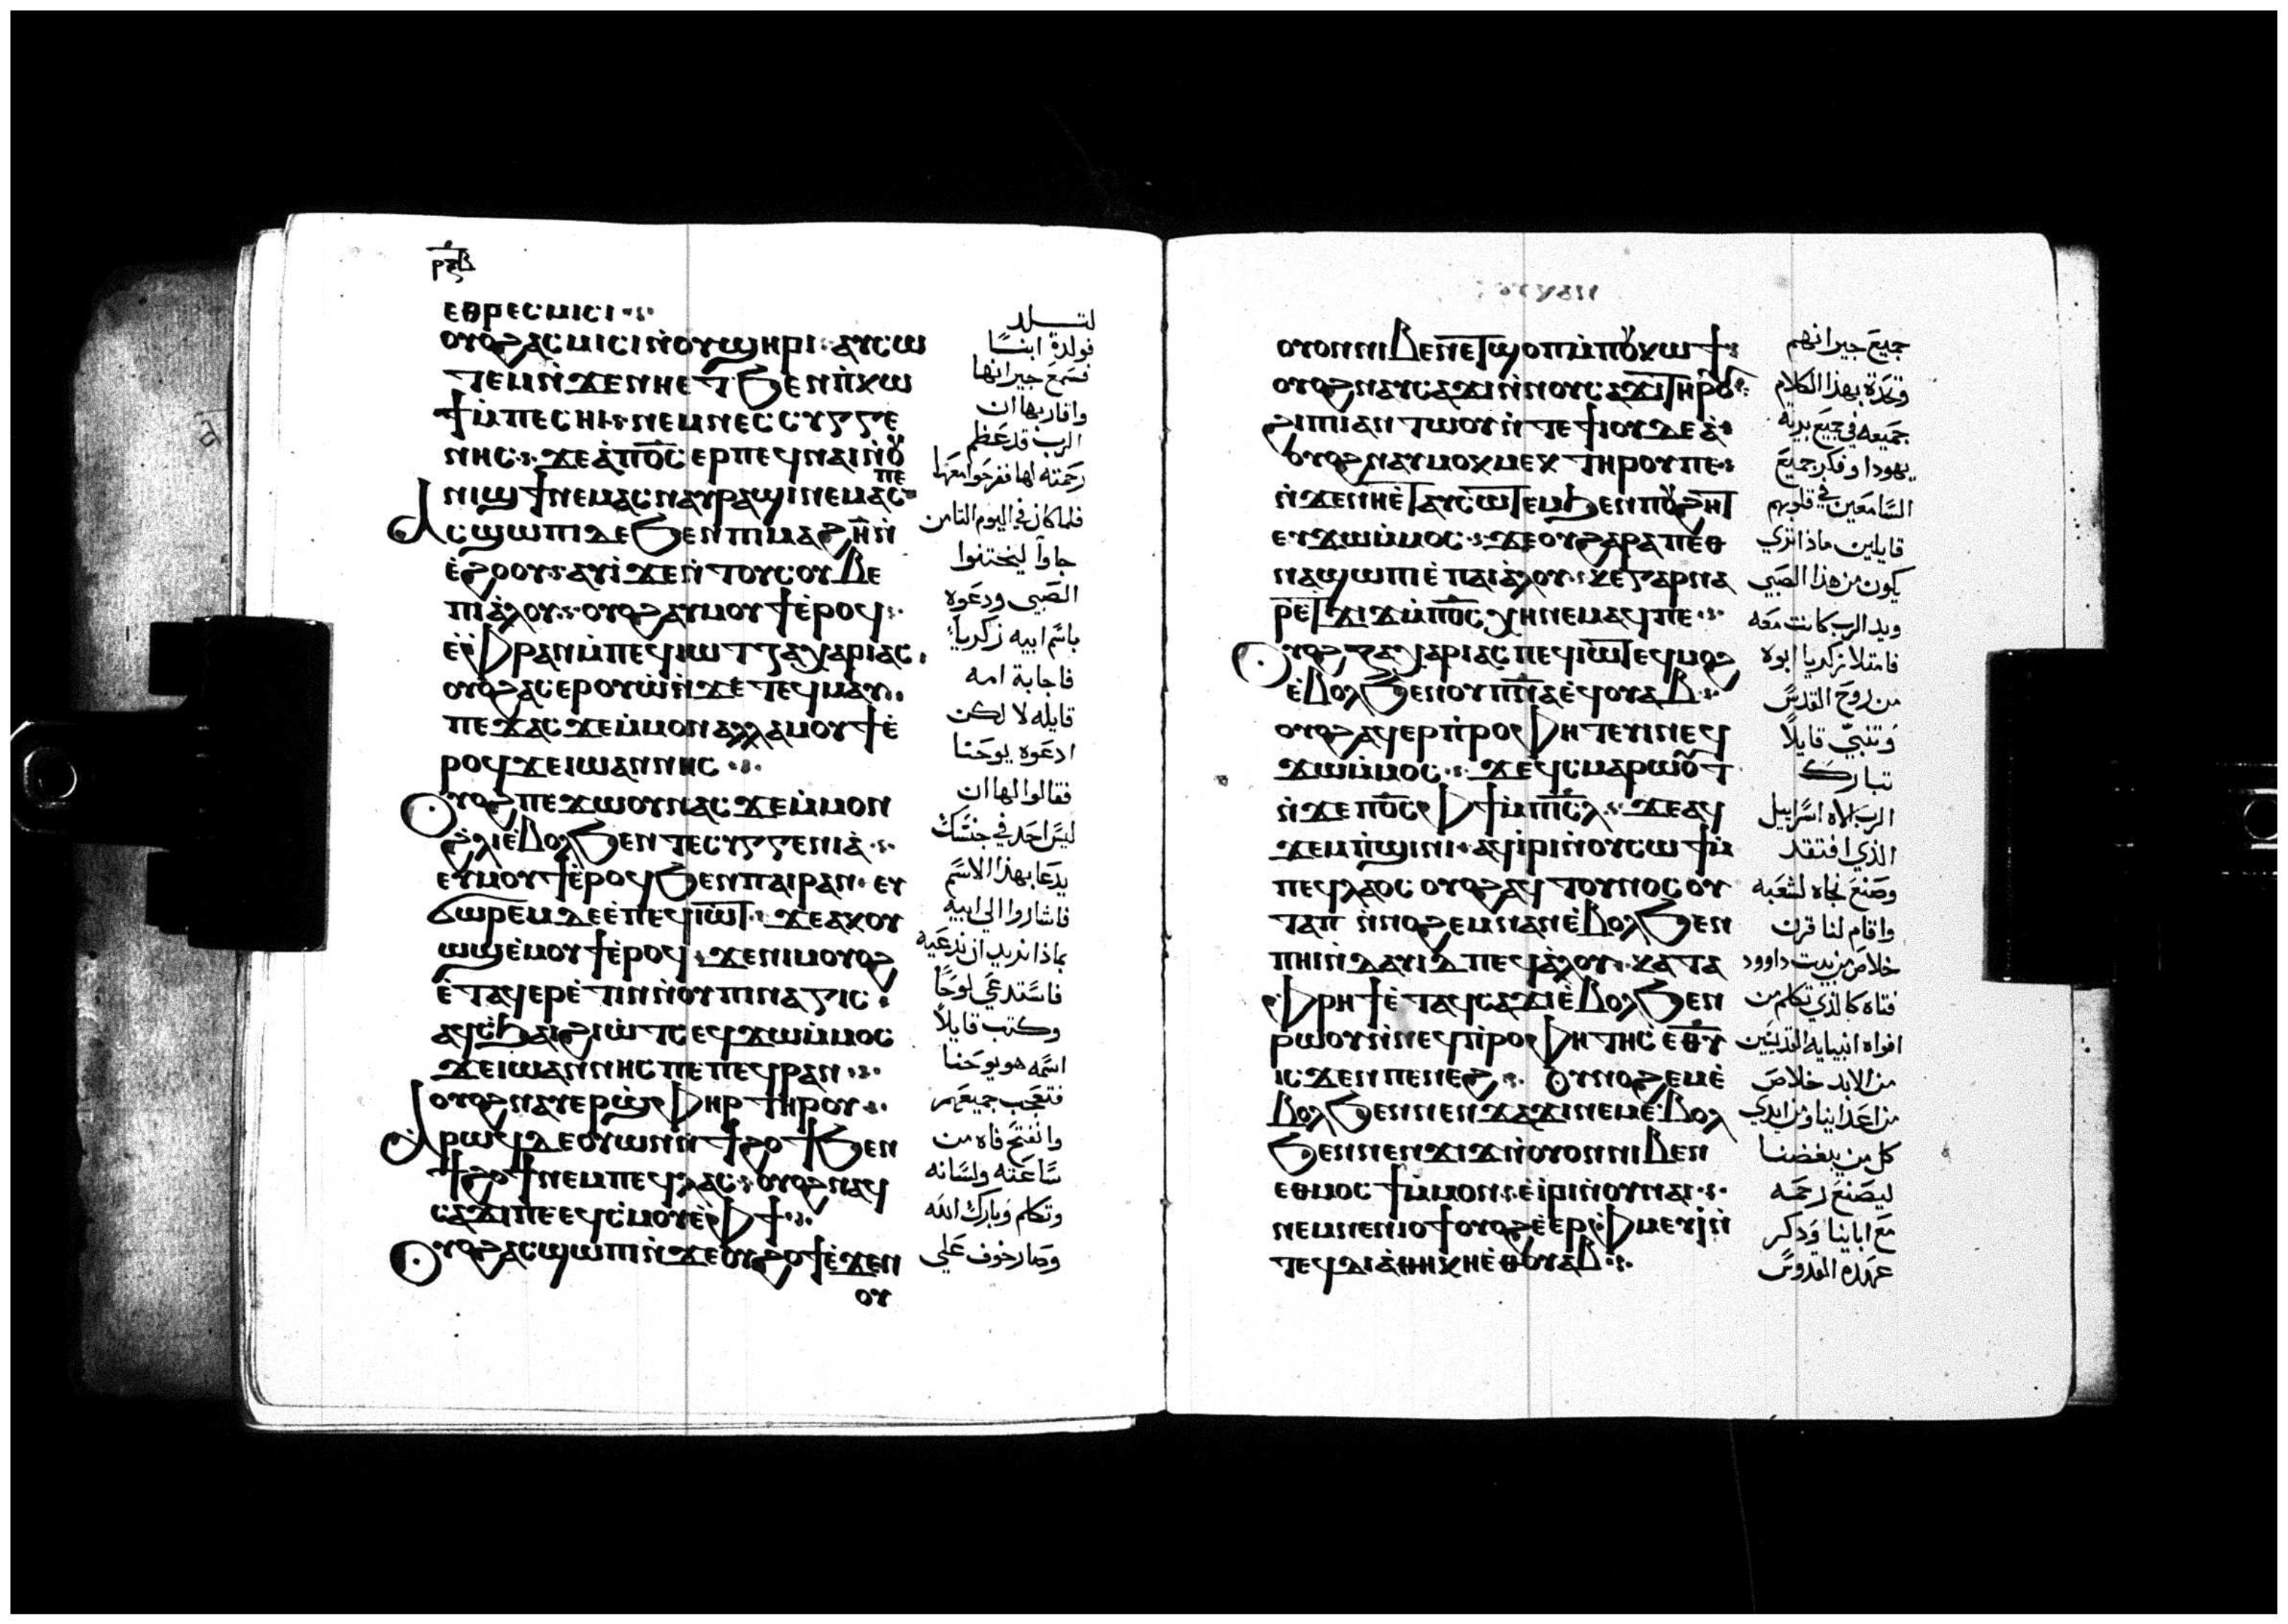 ⲣⲝⲃ
ⲉⲑⲣⲉⲥⲙⲓⲥⲓ
ⲟⲩⲟϩ ⲁⲥⲙⲓⲥⲓ ⲛ̀ⲟⲩϣⲏⲣⲓ ⲁⲩⲥⲱ
ⲧⲉⲙ ⲛ̀ϫⲉⲛⲏⲉⲧϧⲉⲛ ⲡ̀ⲕⲱ
ϯ ⲙ̀ⲡⲉⲥⲏⲓ ⲛⲉⲙ ⲛⲉⲥⲥⲩⲅⲅⲉ
ⲛⲏⲥ ϫⲉ ⲁ̀ⲡⲟ̅ⲥ̅ ⲉⲣⲡⲉϥⲛⲁⲓ ⲛ̀ⲟⲩ
ⲛⲓϣϯ ⲛⲉⲙⲁⲥ ⲛⲁⲩⲣⲁϣⲓ ⲛⲉⲙⲁⲥ ⲡⲉ
Ⲁⲥϣⲱⲡⲓ ⲇⲉ ϧⲉⲛ ⲡⲓⲙⲁϩⲏ̅ ⲛ̀
ⲉ̀ϩⲟⲟⲩ ⲁⲩⲓ̀ ϫⲉ ⲛ̀ⲧⲟⲩⲥⲟⲩⲃⲉ
ⲡⲓⲁ̀ⲗⲟⲩ ⲟⲩⲟϩ ⲁⲩⲙⲟⲩϯ ⲉ̀ⲣⲟϥ
ⲉ̀ⲫⲣⲁⲛ ⲙ̀ⲡⲉϥⲓⲱⲧ ⲍⲁⲭⲁⲣⲓⲁⲥ
ⲟⲩⲟϩ ⲁⲥⲉⲣⲟⲩⲱ̀ ⲛ̀ϫⲉ ⲧⲉϥⲙⲁⲩ
ⲡⲉϫⲁⲥ ϫⲉ ⲙ̀ⲙⲟⲛ ⲁⲗⲗⲁ ⲙⲟⲩϯ ⲉ̀
ⲣⲟϥ ϫⲉ ⲓⲱⲁⲛⲛⲏⲥ
Ⲟⲩⲟϩ ⲡⲉϫⲱⲟⲩ ⲛⲁⲥ ϫⲉ ⲙ̀ⲙⲟⲛ
ϩ̀ⲗⲓ ⲉ̀ⲃⲟⲗ ϧⲉⲛ ⲧⲉⲥⲩⲅⲅⲉⲛⲓⲁ̀
ⲉⲩⲙⲟⲩϯ ⲉ̀ⲣⲟϥ ϧⲉⲛ ⲡⲁⲓⲣⲁⲛ ⲉⲩ
ϭⲱⲣⲉⲙ ⲇⲉ ⲉ̀ⲡⲉϥⲓⲱⲧ ϫⲉ ⲁⲕⲟⲩ
ⲱϣ ⲉ̀ⲙⲟⲩϯ ⲉ̀ⲣⲟϥ ϫⲉ ⲛⲓⲙ ⲟⲩⲟϩ
ⲉ̀ⲧⲁϥⲉⲣⲉ̀ⲧⲓⲛ ⲛ̀ⲟⲩⲡⲓⲛⲁⲅⲓⲥ
ⲁϥⲥϧⲁⲓ ϩⲓⲱ̀ⲧⲥ ⲉϥϫⲱ ⲙ̀ⲙⲟⲥ
ϫⲉ ⲓⲱⲁⲛⲛⲏⲥ ⲡⲉ ⲡⲉϥⲣⲁⲛ
ⲟⲩⲟϩ ⲛⲁⲩⲉⲣϣ̀ⲫⲏⲣ ⲧⲏⲣⲟⲩ
Ⲁⲣⲱϥ ⲇⲉ ⲟⲩⲱⲛ ⲛ̀ϯϩⲟϯ ϧⲉⲛ
ϯϩⲟϯ ⲛⲉⲙ ⲡⲉϥⲗⲁⲥ ⲟⲩⲟϩ ⲛⲁϥ
ⲥⲁϫⲓ ⲡⲉ ⲉϥⲥ̀ⲙⲟⲩ ⲉ̀ⲫϯ
Ⲟⲩⲟϩ ⲁⲥϣⲱⲡⲓ ⲛ̀ϫⲉ ⲟⲩϩⲟϯ ⲉ̀ϫⲉⲛ
ⲟⲩ
لتلد
فولدة ابنا
فسمع جيرانها
واقاربها ان
الرب قد عظم
رحمته لها ففرحوا معها
فلما كان في اليوم الثامن
جاوا ليختنوا
الصبي ودعوه
باسم ابيه زكريا
فاجابة امه
قايله لا لكن
ادعوه يوحنا
فقالوا لها ان
ليس احد في جنسك
يدعا بهذا الاسم
فاشاروا الي ابيه
بماذا تريد ان ندعيه
فاستدعي لوحا
وكتب قايلا
اسمه هو يوحنا
فتعجب جميعهم
وانفتح فاه من
ساعته ولسانه
وتكلم وبارك الله
وصار خوف علي
ⲟⲩⲟⲛ ⲛⲓⲃⲉⲛ ⲉⲧϣⲟⲡ ⲙ̀ⲡⲟⲩⲕⲱϯ
ⲟⲩⲟϩ ⲛⲁⲩⲥⲁϫⲓ ⲛ̀ⲛⲟⲩⲥⲁϫⲓ ⲧⲏⲣⲟⲩ
ϩⲓ ⲡⲓⲁⲛⲧⲱⲟⲩ ⲛ̀ⲧⲉ ϯⲓⲟⲩⲇⲉⲁ̀
ⲟⲩⲟϩ ⲛⲁⲩⲙⲟⲕⲙⲉⲕ ⲧⲏⲣⲟⲩ ⲡⲉ
ⲛ̀ϫⲉ ⲛⲏⲉ̀ⲧⲁⲩⲥⲱⲧⲉⲙ ϧⲉⲛ ⲡⲟⲩϩⲏⲧ
ⲉⲩϫⲱ ⲙ̀ⲙⲟⲥ ϫⲉ ⲟⲩ ϩⲁⲣⲁ ⲡⲉⲑ
ⲛⲁϣⲱⲡⲓ ⲉ̀ⲡⲁⲓⲁ̀ⲗⲟⲩ ⲕⲉ ⲅⲁⲣ ⲛⲁ
ⲣⲉ ⲧϫⲓϫ ⲙ̀ⲡⲟ̅ⲥ̅ ⲭⲏ ⲛⲉⲙⲁϥ ⲡⲉ
Ⲟⲩⲟϩ ⲍⲁⲭⲁⲣⲓⲁⲥ ⲡⲉϥⲓⲱⲧ ⲉϥⲙⲟϩ
ⲉ̀ⲃⲟⲗ ϧⲉⲛ ⲟⲩⲡ̅ⲛ̅ⲁ̅ ⲉ̀ϥⲟⲩⲁⲃ
ⲟⲩⲟϩ ⲁϥⲉⲣⲡ̀ⲣⲟⲫⲏⲧⲉⲩⲓⲛ ⲉϥ
ϫⲱ ⲙ̀ⲙⲟⲥ ϫⲉ ϥⲥⲙⲁⲣⲱⲟⲩⲧ
ⲛ̀ϫⲉ ⲡⲟ̅ⲥ̅ ⲫϯ ⲙ̀ⲡⲓ̅ⲥ̅ⲗ̅ ϫⲉ ⲁϥ
ϫⲉⲙⲡ̀ϣⲓⲛⲓ ⲁϥⲓⲣⲓ ⲛ̀ⲟⲩⲥⲱϯ ⲙ̀
ⲡⲉϥⲗⲁⲟⲥ ⲟⲩⲟϩ ⲁϥⲧⲟⲩⲛⲟⲥ ⲟⲩ
ⲧⲁⲡ ⲛ̀ⲛⲟϩⲉⲙ ⲛⲁⲛ ⲉ̀ⲃⲟⲗ ϧⲉⲛ
ⲡⲏⲓ ⲛ̀ⲇⲁⲩⲓⲇ ⲡⲉϥⲁ̀ⲗⲟⲩ ⲕⲁⲧⲁ
ⲫⲣⲏϯ ⲉ̀ⲧⲁϥⲥⲁϫⲓ ⲉ̀ⲃⲟⲗ ϧⲉⲛ
ⲣⲱⲟⲩ ⲛ̀ⲛⲉϥⲡ̀ⲣⲟⲫⲏⲧⲏⲥ ⲉⲑⲩ
ⲓⲥϫⲉⲛ ⲡⲉⲛⲉϩ ⲟⲩⲛⲟϩⲉⲙ ⲉ̀
ⲃⲟⲗ ϧⲉⲛ ⲛⲉⲛϫⲁϫⲓ ⲛⲉⲙ ⲉ̀ⲃⲟⲗ
ϧⲉⲛ ⲛⲉⲛϫⲓϫ ⲛ̀ⲟⲩⲟⲛ ⲛⲓⲃⲉⲛ
ⲉⲑⲙⲟⲥϯ ⲙ̀ⲙⲟⲛ ⲉ̀ⲓ̀ⲣⲓ ⲛ̀ⲟⲩⲛⲁⲓ
ⲛⲉⲙ ⲛⲉⲛⲓⲟϯ ⲟⲩⲟϩ ⲉ̀ⲉⲣⲫ̀ⲙⲉⲩⲓ ⲛ̀
ⲧⲉϥⲇⲓⲁⲑⲏⲕⲏ ⲉ̀ⲑⲟⲩⲁⲃ
جميع جيرانهم
وتحدة بهذا الكلام
جميعه في جميع برية
يهودا وفكر جميع
السامعين في قلوبهم
قايلين ماذا تري
يكون من هذا الصبي
ويد الرب كانت معه
فامتلا زكريا ابوه
من روح القدس
وتنبي قايلا
تبارك
الرب الاه اسراييل
الذي افتقد
وصنع نجاه لشعبه
واقام لنا قرن
خلاص من بيت داوود
فتاه كالذي تكلم من
افواه انبيايه القديسين
من الابد خلاص
من اعداينا ومن ايدي
كل من يبغضنا
ليصنع رحمه
مع اباينا وذكر
عهده القدوس